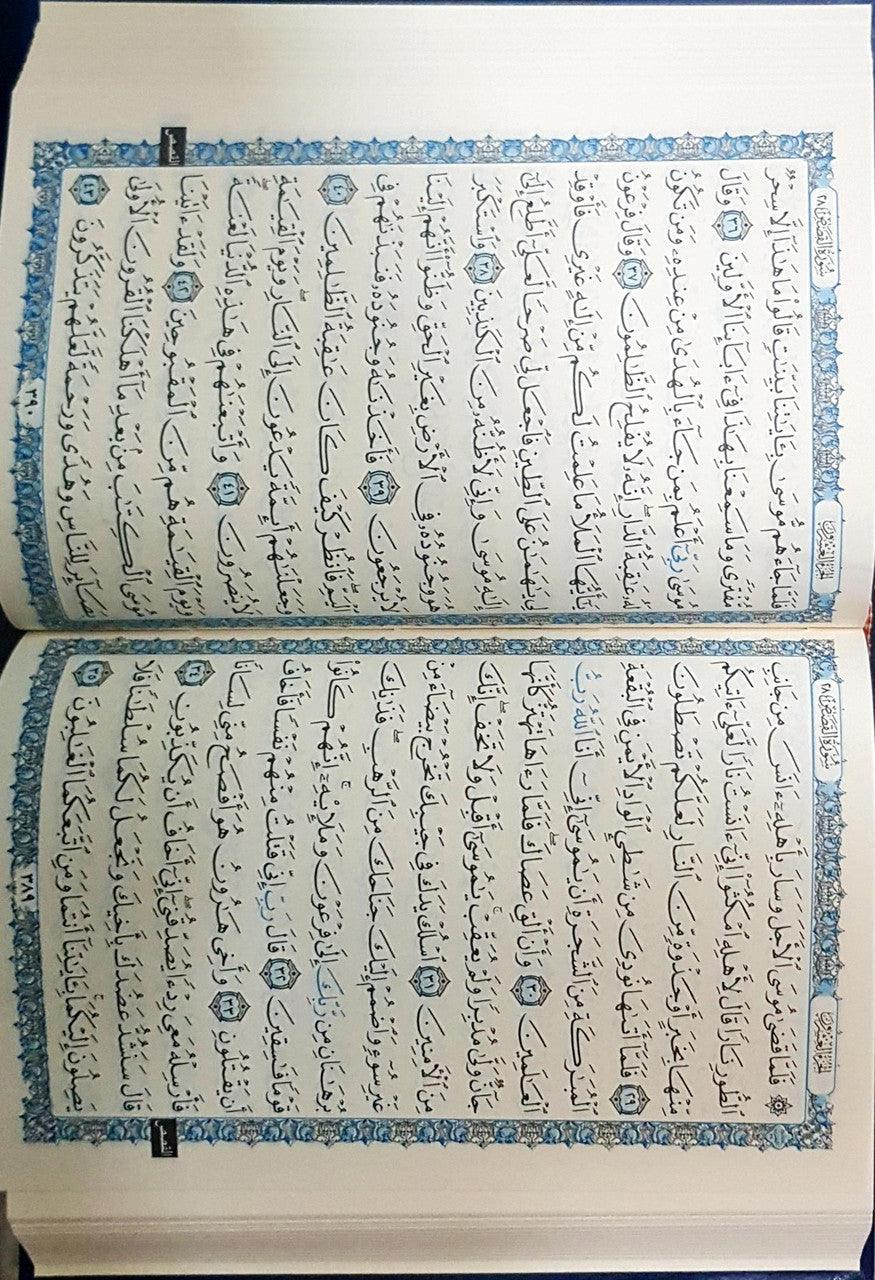 سُورَةُ القَصَصِ ٢٨
الجُزْءُ العِشْرُونَ
۞ فَلَمَّا قَضَىٰ مُوسَى ٱلْأَجَلَ وَسَارَ بِأَهْلِهِۦٓ ءَانَسَ مِن جَانِبِ
ٱلطُّورِ نَارًا قَالَ لِأَهْلِهِ ٱمْكُثُوٓا۟ إِنِّىٓ ءَانَسْتُ نَارًا لَّعَلِّىٓ ءَاتِيكُم
مِّنْهَا بِخَبَرٍ أَوْ جَذْوَةٍ مِّنَ ٱلنَّارِ لَعَلَّكُمْ تَصْطَلُونَ
٢٩ فَلَمَّآ أَتَىٰهَا نُودِىَ مِن شَٰطِئِ ٱلْوَادِ ٱلْأَيْمَنِ فِى ٱلْبُقْعَةِ
ٱلْمُبَٰرَكَةِ مِنَ ٱلشَّجَرَةِ أَن يَٰمُوسَىٰٓ إِنِّىٓ أَنَا ٱللَّهُ رَبُّ
ٱلْعَٰلَمِينَ ٣٠ وَأَنْ أَلْقِ عَصَاكَ ۖ فَلَمَّا رَءَاهَا تَهْتَزُّ كَأَنَّهَا
جَآنٌّ وَلَّىٰ مُدْبِرًا وَلَمْ يُعَقِّبْ ۚ يَٰمُوسَىٰٓ أَقْبِلْ وَلَا تَخَفْ ۖ إِنَّكَ
مِنَ ٱلْءَامِنِينَ ٣١ ٱسْلُكْ يَدَكَ فِى جَيْبِكَ تَخْرُجْ بَيْضَآءَ مِنْ
غَيْرِ سُوٓءٍ وَٱضْمُمْ إِلَيْكَ جَنَاحَكَ مِنَ ٱلرَّهْبِ ۖ فَذَٰنِكَ
بُرْهَٰنَانِ مِن رَّبِّكَ إِلَىٰ فِرْعَوْنَ وَمَلَإِي۟هِۦٓ ۚ إِنَّهُمْ كَانُوا۟
قَوْمًا فَٰسِقِينَ ٣٢ قَالَ رَبِّ إِنِّى قَتَلْتُ مِنْهُمْ نَفْسًا فَأَخَافُ
أَن يَقْتُلُونِ ٣٣ وَأَخِى هَٰرُونُ هُوَ أَفْصَحُ مِنِّى لِسَانًا
فَأَرْسِلْهُ مَعِىَ رِدْءًا يُصَدِّقُنِىٓ ۖ إِنِّىٓ أَخَافُ أَن يُكَذِّبُونِ ٣٤
قَالَ سَنَشُدُّ عَضُدَكَ بِأَخِيكَ وَنَجْعَلُ لَكُمَا سُلْطَٰنًا فَلَا
يَصِلُونَ إِلَيْكُمَا ۚ بِـَٔايَٰتِنَآ أَنتُمَا وَمَنِ ٱتَّبَعَكُمَا ٱلْغَٰلِبُونَ ٣٥
٣٨٩
القصص
سُورَةُ القَصَصِ ٢٨
الجُزْءُ العِشْرُونَ
فَلَمَّا جَآءَهُم مُّوسَىٰ بِـَٔايَٰتِنَا بَيِّنَٰتٍ قَالُوا۟ مَا هَٰذَآ إِلَّا سِحْرٌ
مُّفْتَرًى وَمَا سَمِعْنَا بِهَٰذَا فِىٓ ءَابَآئِنَا ٱلْأَوَّلِينَ ٣٦ وَقَالَ
مُوسَىٰ رَبِّىٓ أَعْلَمُ بِمَن جَآءَ بِٱلْهُدَىٰ مِنْ عِندِهِۦ وَمَن تَكُونُ
لَهُۥ عَٰقِبَةُ ٱلدَّارِ ۖ إِنَّهُۥ لَا يُفْلِحُ ٱلظَّٰلِمُونَ ٣٧ وَقَالَ فِرْعَوْنُ
يَٰٓأَيُّهَا ٱلْمَلَأُ مَا عَلِمْتُ لَكُم مِّنْ إِلَٰهٍ غَيْرِى فَأَوْقِدْ
لِى يَٰهَٰمَٰنُ عَلَى ٱلطِّينِ فَٱجْعَل لِّى صَرْحًا لَّعَلِّىٓ أَطَّلِعُ إِلَىٰٓ
إِلَٰهِ مُوسَىٰ وَإِنِّى لَأَظُنُّهُۥ مِنَ ٱلْكَٰذِبِينَ ٣٨ وَٱسْتَكْبَرَ
هُوَ وَجُنُودُهُۥ فِى ٱلْأَرْضِ بِغَيْرِ ٱلْحَقِّ وَظَنُّوٓا۟ أَنَّهُمْ إِلَيْنَا
لَا يُرْجَعُونَ ٣٩ فَأَخَذْنَٰهُ وَجُنُودَهُۥ فَنَبَذْنَٰهُمْ فِى
ٱلْيَمِّ ۖ فَٱنظُرْ كَيْفَ كَانَ عَٰقِبَةُ ٱلظَّٰلِمِينَ ٤٠
وَجَعَلْنَٰهُمْ أَئِمَّةً يَدْعُونَ إِلَى ٱلنَّارِ ۖ وَيَوْمَ ٱلْقِيَٰمَةِ
لَا يُنصَرُونَ ٤١ وَأَتْبَعْنَٰهُمْ فِى هَٰذِهِ ٱلدُّنْيَا لَعْنَةً ۖ
وَيَوْمَ ٱلْقِيَٰمَةِ هُم مِّنَ ٱلْمَقْبُوحِينَ ٤٢ وَلَقَدْ ءَاتَيْنَا
مُوسَى ٱلْكِتَٰبَ مِنۢ بَعْدِ مَآ أَهْلَكْنَا ٱلْقُرُونَ ٱلْأُولَىٰ
بَصَآئِرَ لِلنَّاسِ وَهُدًى وَرَحْمَةً لَّعَلَّهُمْ يَتَذَكَّرُونَ ٤٣
٣٩٠
القصص